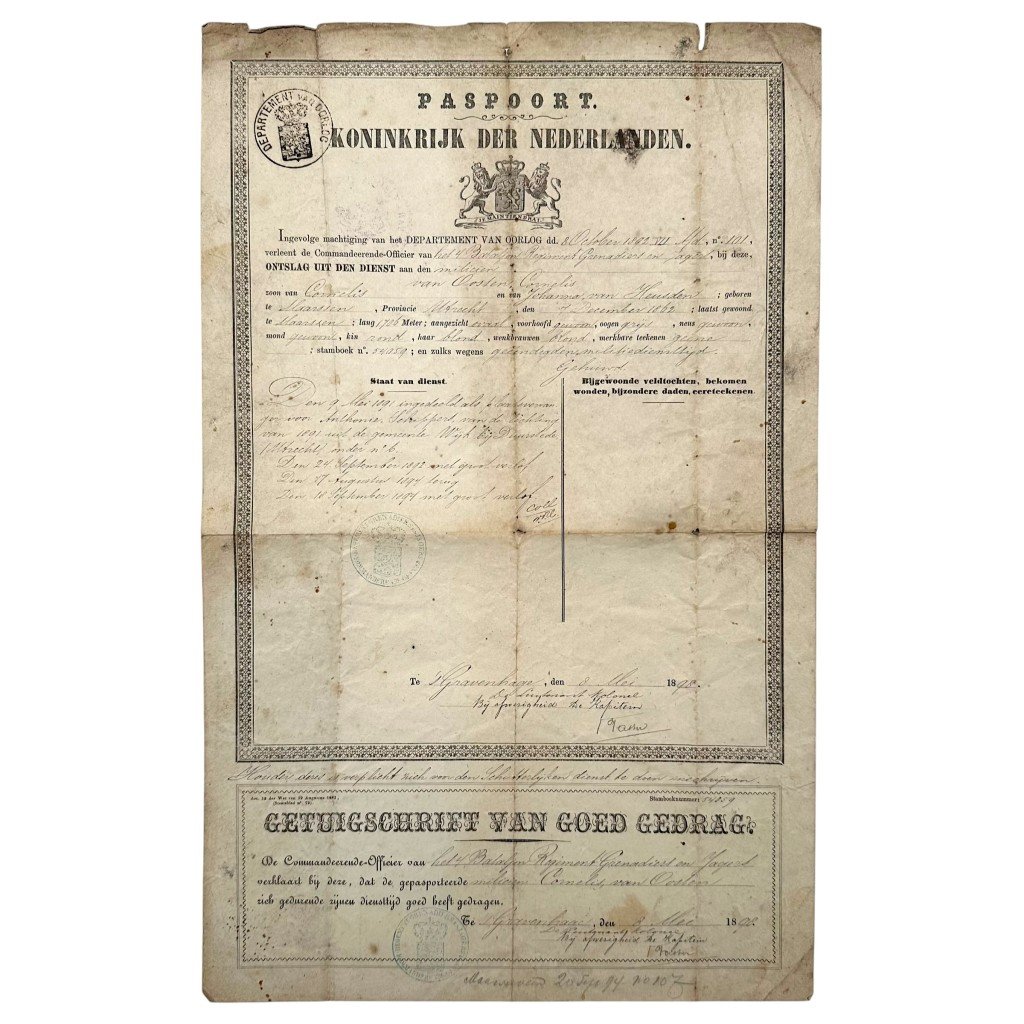 PASPOORT.
DEPARTEMENT VAN OORLOG
KONINKRIJK DER NEDERLANDEN.
JE MAINTIENDRAI
Ingevolge machtiging van het DEPARTEMENT VAN OORLOG dd. 8 October 1892 VII Afd., no. 101
verleent de Commandeerende-Officier van het 4e Bataljon Regiment Grenadiers en Jagers, bij deze,
ONTSLAG UIT DEN DIENST aan den milicien
van Oosten, Cornelis
zoon van Cornelis en van Johanna van Heusden; geboren
te Maarssen, Provincie Utrecht, den 7 December 1862; laatst gewoond
te Maarssen; lang 1,726 Meter; aangezicht ovaal, voorhoofd gewoon, oogen grijs, neus gewoon,
mond gewoon, kin rond, haar blond, wenkbrauwen blond, merkbare teekenen geene
; stamboek no. 54359; en zulks wegens geëindigden militiediensttijd.
Gehuwd
Staat van dienst.
Bijgewoonde veldtochten, bekomen
wonden, bijzondere daden, eereteekenen.
Den 9 Mei 1891 ingedeeld als plaatsvervan-
ger voor Anthonie Schippers van de lichting
van 1891 uit de gemeente Wijk bij Duurstede
(Utrecht) onder no. 6.
Den 24 September 1892 met groot verlof
Den 17 Augustus 1894 terug
Den 18 September 1894 met groot verlof
Te 's Gravenhage, den 8 Mei 1898.
De Luitenant Kolonel
Bij afwezigheid de Kapitein
Houder dezes is verplicht zich voor den Schutterlijken dienst te doen inschrijven.
Art. 10 der Wet van 19 Augustus 1861,
(Staatsblad no. 72).
Stamboeknummer: 54359
GETUIGSCHRIFT VAN GOED GEDRAG.
De Commandeerende-Officier van het 4e Bataljon Regiment Grenadiers en Jagers
verklaart bij deze, dat de gepasporteerde milicien Cornelis van Oosten
zich gedurende zijnen diensttijd goed heeft gedragen.
Te 's Gravenhage, den 8 Mei 1898.
De Luitenant Kolonel
Bij afwezigheid de Kapitein